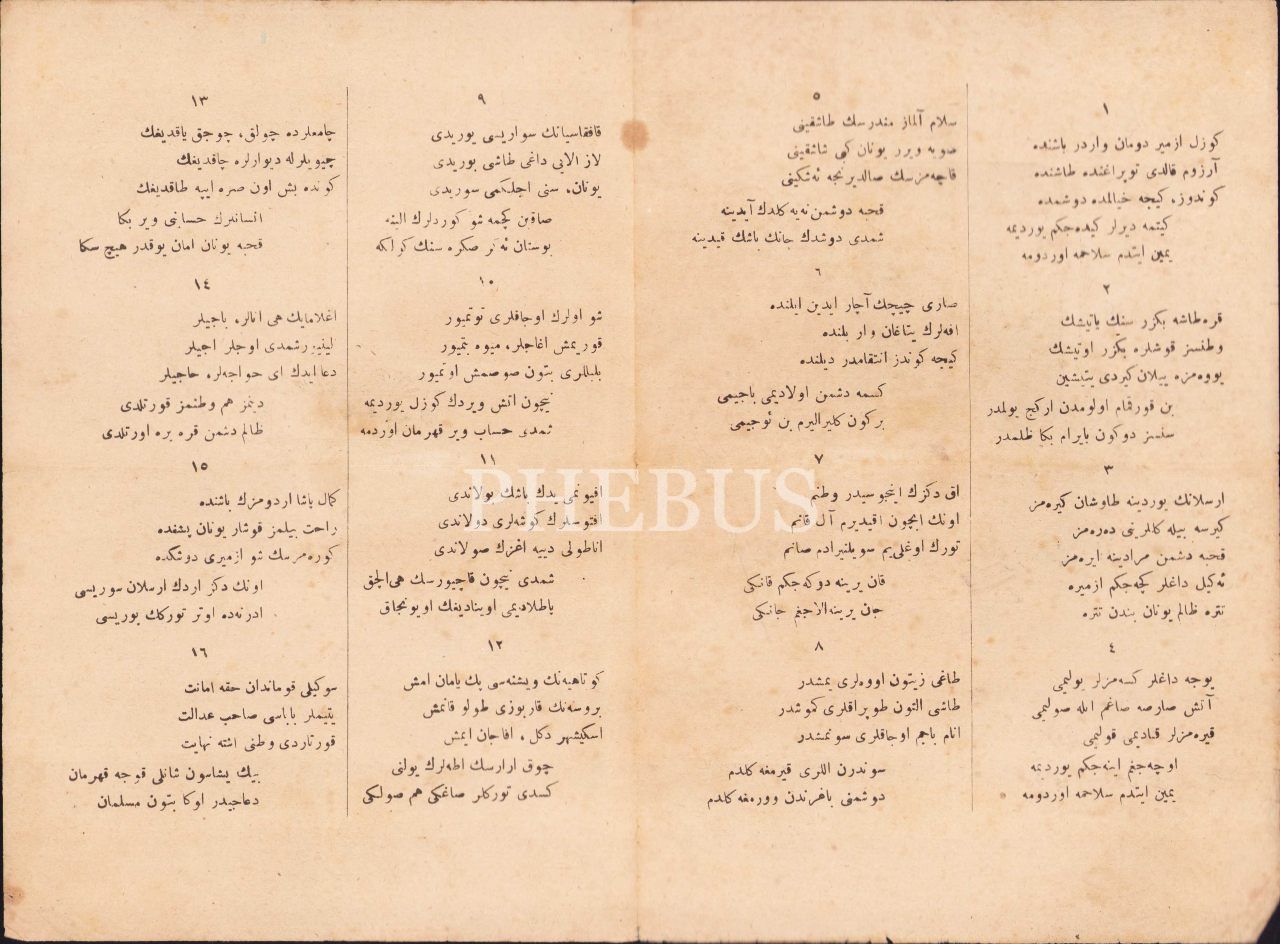 ١
كوزل ازمير دومان واردر باشنده
آرزوم قالدى توپراغنده طاشنده
كوندوز، كيجه خيالمده دوشمده
كيتمه ديرلر كيده‌جكم يورديمه
يمين ايتدم سلاحمه اوردومه
٢
قره‌طاشه بكزر سنك ياتيشك
وطنسز قوشلره بكزر اوتيشك
يووه‌مزه ييلان كيردى يتيشين
بن قورقمام اولومدن اركج يولمدر
سنسز دوكون بايرام بكا ظلمدر
٣
ارسلانك يوردينه طاوشان كيره‌مز
كيرسه بيله كللرنى دره‌مز
قحبه دشمن مرادينه ايره‌مز
ئه‌كيل داغلر كچه‌جكم ازميره
تتره ظالم يونان بندن تتره
٤
يوجه داغلر كسه‌مزلر يوليمى
آتش صارصه صاغم ايله صوليمى
قيره‌مزلر قنادیمى قوليمى
اوچه‌جغم اينه‌جكم يورديمه
يمين ايتدم سلاحمه اوردومه
٥
سلام آلماز مندرسك طاشقينى
صوبه ويرر يونان كبى شاشقينى
قاچه‌مزسك صالديرنجه ئه‌شكينى
قحبه دوشمن نه‌يه كلدك آيدينه
شمدى دوشدك جانك باشك قيدينه
٦
صارى چيچك آچار ايدين ايلنده
افه‌لرك يتاغان وار بلنده
كيجه كوندز انتقامدر ديلنده
كسمه دشمن اولاديمى باجيمى
بركون كليراليرم بن ئوجيمى
٧
اق دكزك انجوسيدر وطنم
اونك ايچون اقيديرم آل قانم
تورك اوغلى‌يم سويلنيرآدم صانم
قان يرينه دوكه‌جكم قانكى
جان يرينه الاجغم جانكى
٨
طاغى زيتون اووه‌لرى يمشدر
طاشى التون طوپراقلرى كموشدر
انام باجم اوجاقلرى سونمشدر
سوندرن اللرى قيرمغه كلدم
دوشمنى باغرندن وورمغه كلدم
٩
قافقاسيانك سواريسى يوريدى
لاز الايى داغى طاشى بوريدى
يونان، سنى اجلكمى سوريدى
صاقين كچمه شو كوردلرك البنه
بوستان ئه‌كر صكره سنك كللكه
١٠
شو اولرك اوجاقلرى توتميور
قوريمش اغاجلر، ميوه بتميور
بلبللرى بتون صوصمش اوتميور
نيچون آتش ويردك كوزل يورديمه
شمدى حساب وير قهرمان اوردمه
١١
افيونمى يدك باشك بولاندى
افتوسلرك كوشه‌لرى دولاندى
اناطولى دييه اغزك صولاندى
شمدى نيچون قاچيورسك هى الچق
پاطلاديمى اويناديغك اويونجاق
١٢
كوتاهيه‌نك ويشنه‌سى پك يامان امش
بروسه‌نك قارپوزى طولو قانمش
اسكيشهر دكل، افاجان ايمش
چوق ارارسك اطه‌لرك يولنى
كسدى توركلر صاغكى هم صولكى
١٣
جامعلرده چولق، چوجق ياقديغك
چيويلرله ديوارلره چاقديغك
كونده بش اون صره ايپه طاقديغك
انسانلرك حسابنى وير بكا
قحبه يونان امان يوقدر هيچ سكا
١٤
اغلامايك هى انالر، باجيلر
لينير شمدى اوجلر اجيلر
دعا ايدك اى خواجه‌لر، حاجيلر
دينمز هم وطنمز قورتلدى
ظالم دشمن قره يره اورتلدى
١٥
كمال پاشا اردومزك باشنده
راحت بيلمز قوشار يونان پشنده
كوره‌مرسك شو ازميرى دوشكده
اونك دكز اردك ارسلان سوريسى
ادرنه‌ده اوتر توركك بوريسى
١٦
سوكيلى قوماندان حقه امانت
يتيملر باباسى صاحب عدالت
قورتاردى وطنى اشته نهايت
بيك يشاسون شانلى قوجه قهرمان
دعاجيدر اوكا بتون مسلمان
PHEBUS